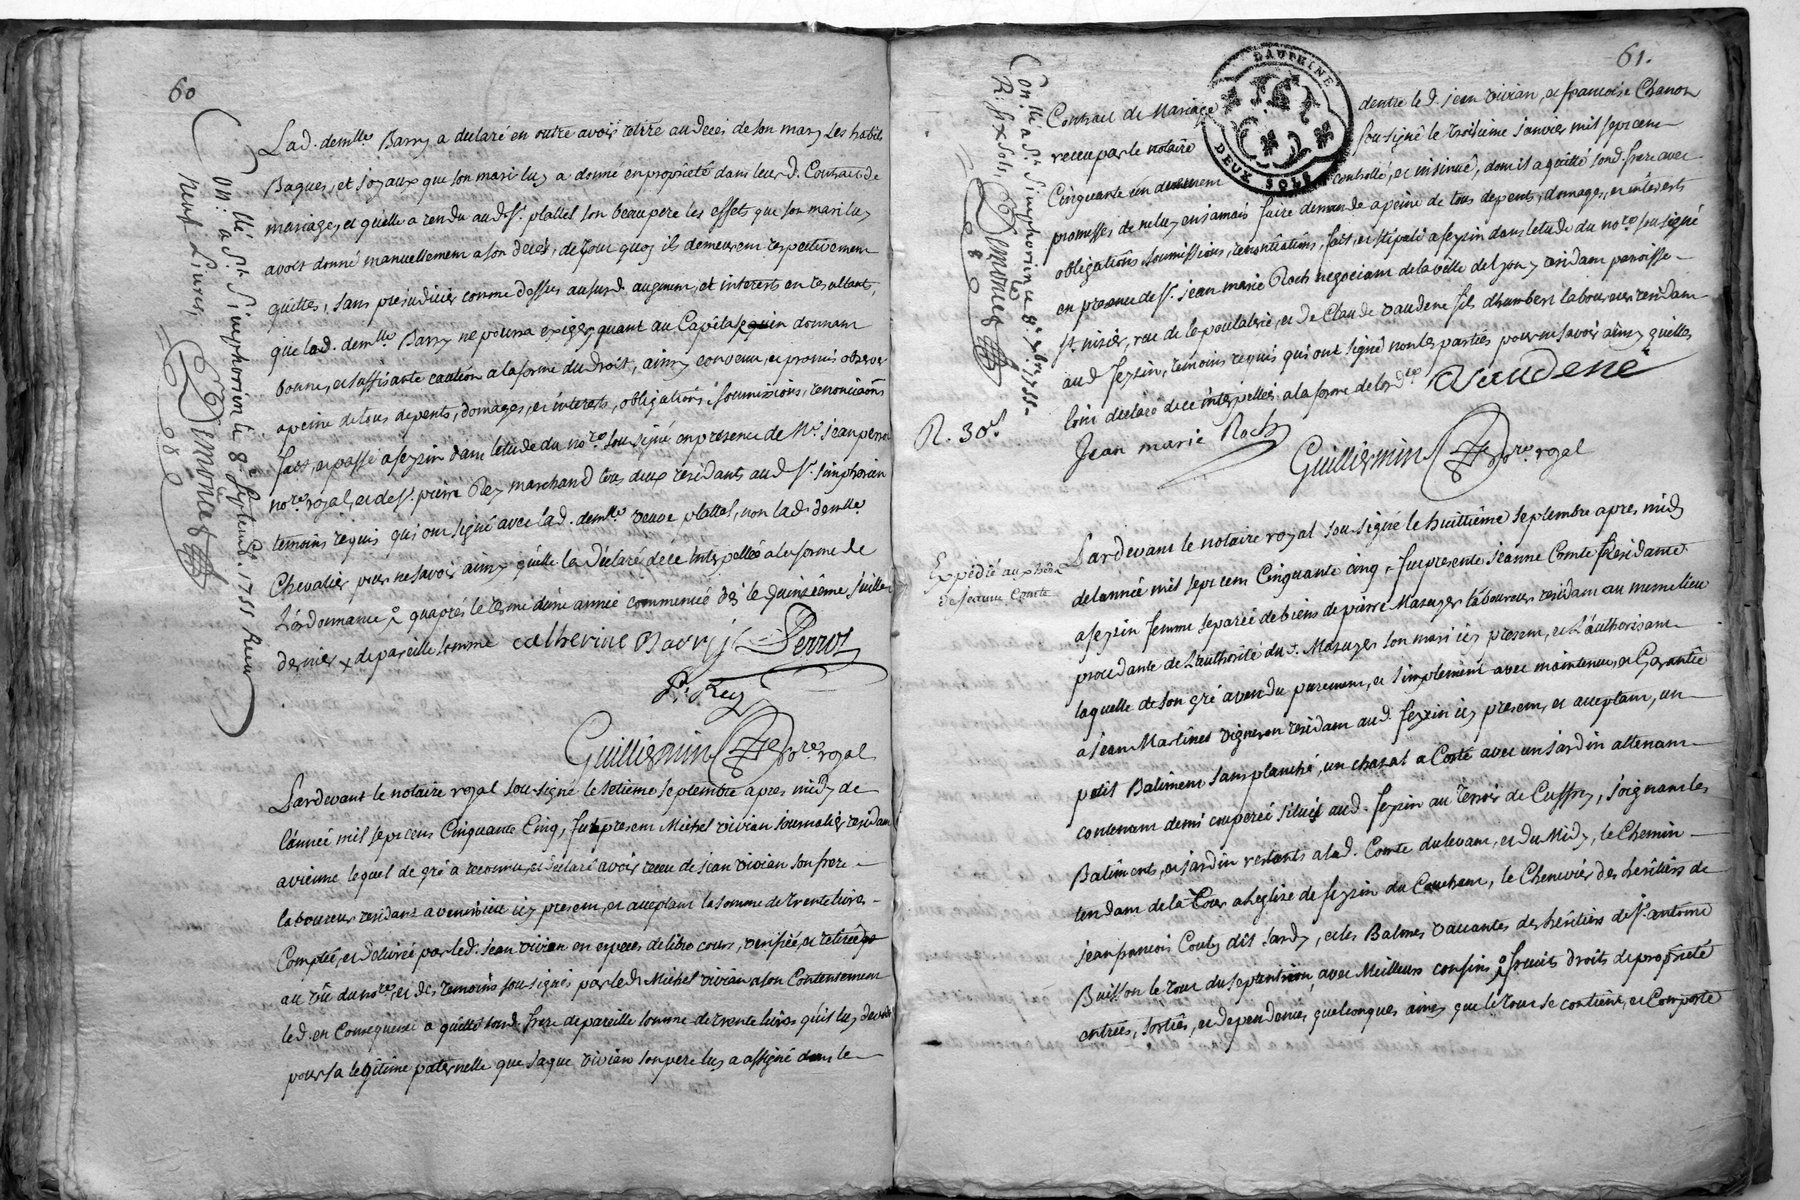 60
Lad. demlle Barry a declaré en outre avoir retiré au deces de son mary les habits
Bagues, et joyaux que son mari luy a donné en proprieté dans leurd. Contract de
mariage, et quelle a rendu aud. sr. plattel son beaupere les effets que son mari luy
avoit donné manuellement a son deces, de tout quoy ils demeurent respectivement
quittes, sans prejudicier comme dessus au surd. augment, et interests en resultant,
que lad. demlle Barry ne pourra exiger quant au Capital qu'en donnant
bonne, et suffisante caution a la forme du Droit, ainsy convenu, et promis observer
a peine de tous depents, domages, et interests, obligations, soumissions, renonciaons
fait, et passé a feyzin dans letude du nore sousigné en presence de Me jean perrot
nore royal, et de sr. pierre Rey marchand tous deux residants aud. st. simphorien
temoins requis qui ont signé avec lad. demlle veuve plattel, non lad. demlle
Chevalier pour ne savoir ainsy quelle la déclaré de ce interpellée a la forme de
L'ordonnance, quaprés le terme dune année commencée dés le quinziéme juillet
dernier de pareille somme catherine Barry Perrot
Pr. Rey
Guillermin nore royal
Pardevant le notaire royal sousigné le setieme septembre apres midy de
l'année mil sept cens Cinquante Cinq, fut present Michel vivian journalier residant
a vienne lequel de gré a reconnu, et declaré avoir receu de jean vivian son frere
laboureur residant a venissieu icy present, et acceptant la somme de trente livres
Comptée, et délivrée par led. jean vivian en especes de libre cours, verifiée, et retirée
au vû du nore, et des temoins sousignés par led. Michel vivian a son Contentement
led. en Consequence a quitté sond. frere de pareille somme de trente livres qu'il luy devoit
pour sa légitime paternelle que jaque vivian son pere luy a assigné dans le
Conllé a St. Simphorien le 8e. Septemb. 1755 Receu
neuf Livres,
Demônez
61.
DAUPHINE
DEUX SOLS
Contract de Mariage dentre led. jean vivian, et francoise Chanon
receu par le notaire sousigné le troisieme janvier mil sept cent
Cinquante un controllé, et insinué, dont il a quitté sond. frere avec
promesses de ne luy en jamais faire demande a peine de tous depents, domages, et interests
obligations, soumissions, renontiations, fait, et stipulé a feyzin dans letude du nore sousigné
en presence de sr. jean marie Roch negociant de la ville de lyon y residant paroisse
st. nizier, rue de la poulalerie, et de Claude vaudene fils dhumbert laboureur residant
aud. feyzin, temoins requis qui ont signé non les parties pour ne savoir ainsy quelles
lont declaré de ce interpellés a la forme de lordce Vaudené
Jean marie Roch
Guillermin nore royal
Conllé a St. Simphorien le 8e. 7bre 1755
R. six sols, Demônez
R. 30s
Expédié aux heirs
de Jeanne Comte
Pardevant le notaire royal sousigné le huittiéme septembre apres midy
delannée mil sept cent Cinquante cinq, fut presente jeanne Comte residante
a feyzin femme separée de biens de pierre Mazuyer laboureur residant au meme lieu
procedante de l'authorité dud. Mazuyer son mari icy present, et L'authorisant
laquelle de son gré a vendu purement, et simplement avec maintenue, et Garantie
a jean Martinet vigneron residant aud. feyzin icy present, et acceptant, un
petit Batiment sans planché, un chazal a Coté avec un jardin attenant
contenant demi couperée situés aud. feyzin au terroir de Cuffrey, joignant les
Batiments, et jardin restants a lad. Comte du levant, et du Midy, le Chemin
tendant de la Cour a l'eglise de feyzin du Couchant, le Chenevier des hériters de
jean francois Couty dit jardy, et les Balmes vacantes des héritiers de sr. antoine
Buisson le tout du septentrion, avec Meilleurs confins, fruits droits de proprieté
entrées, sorties, et dependences quelconques ainsy que le tout se contient, et Comporte